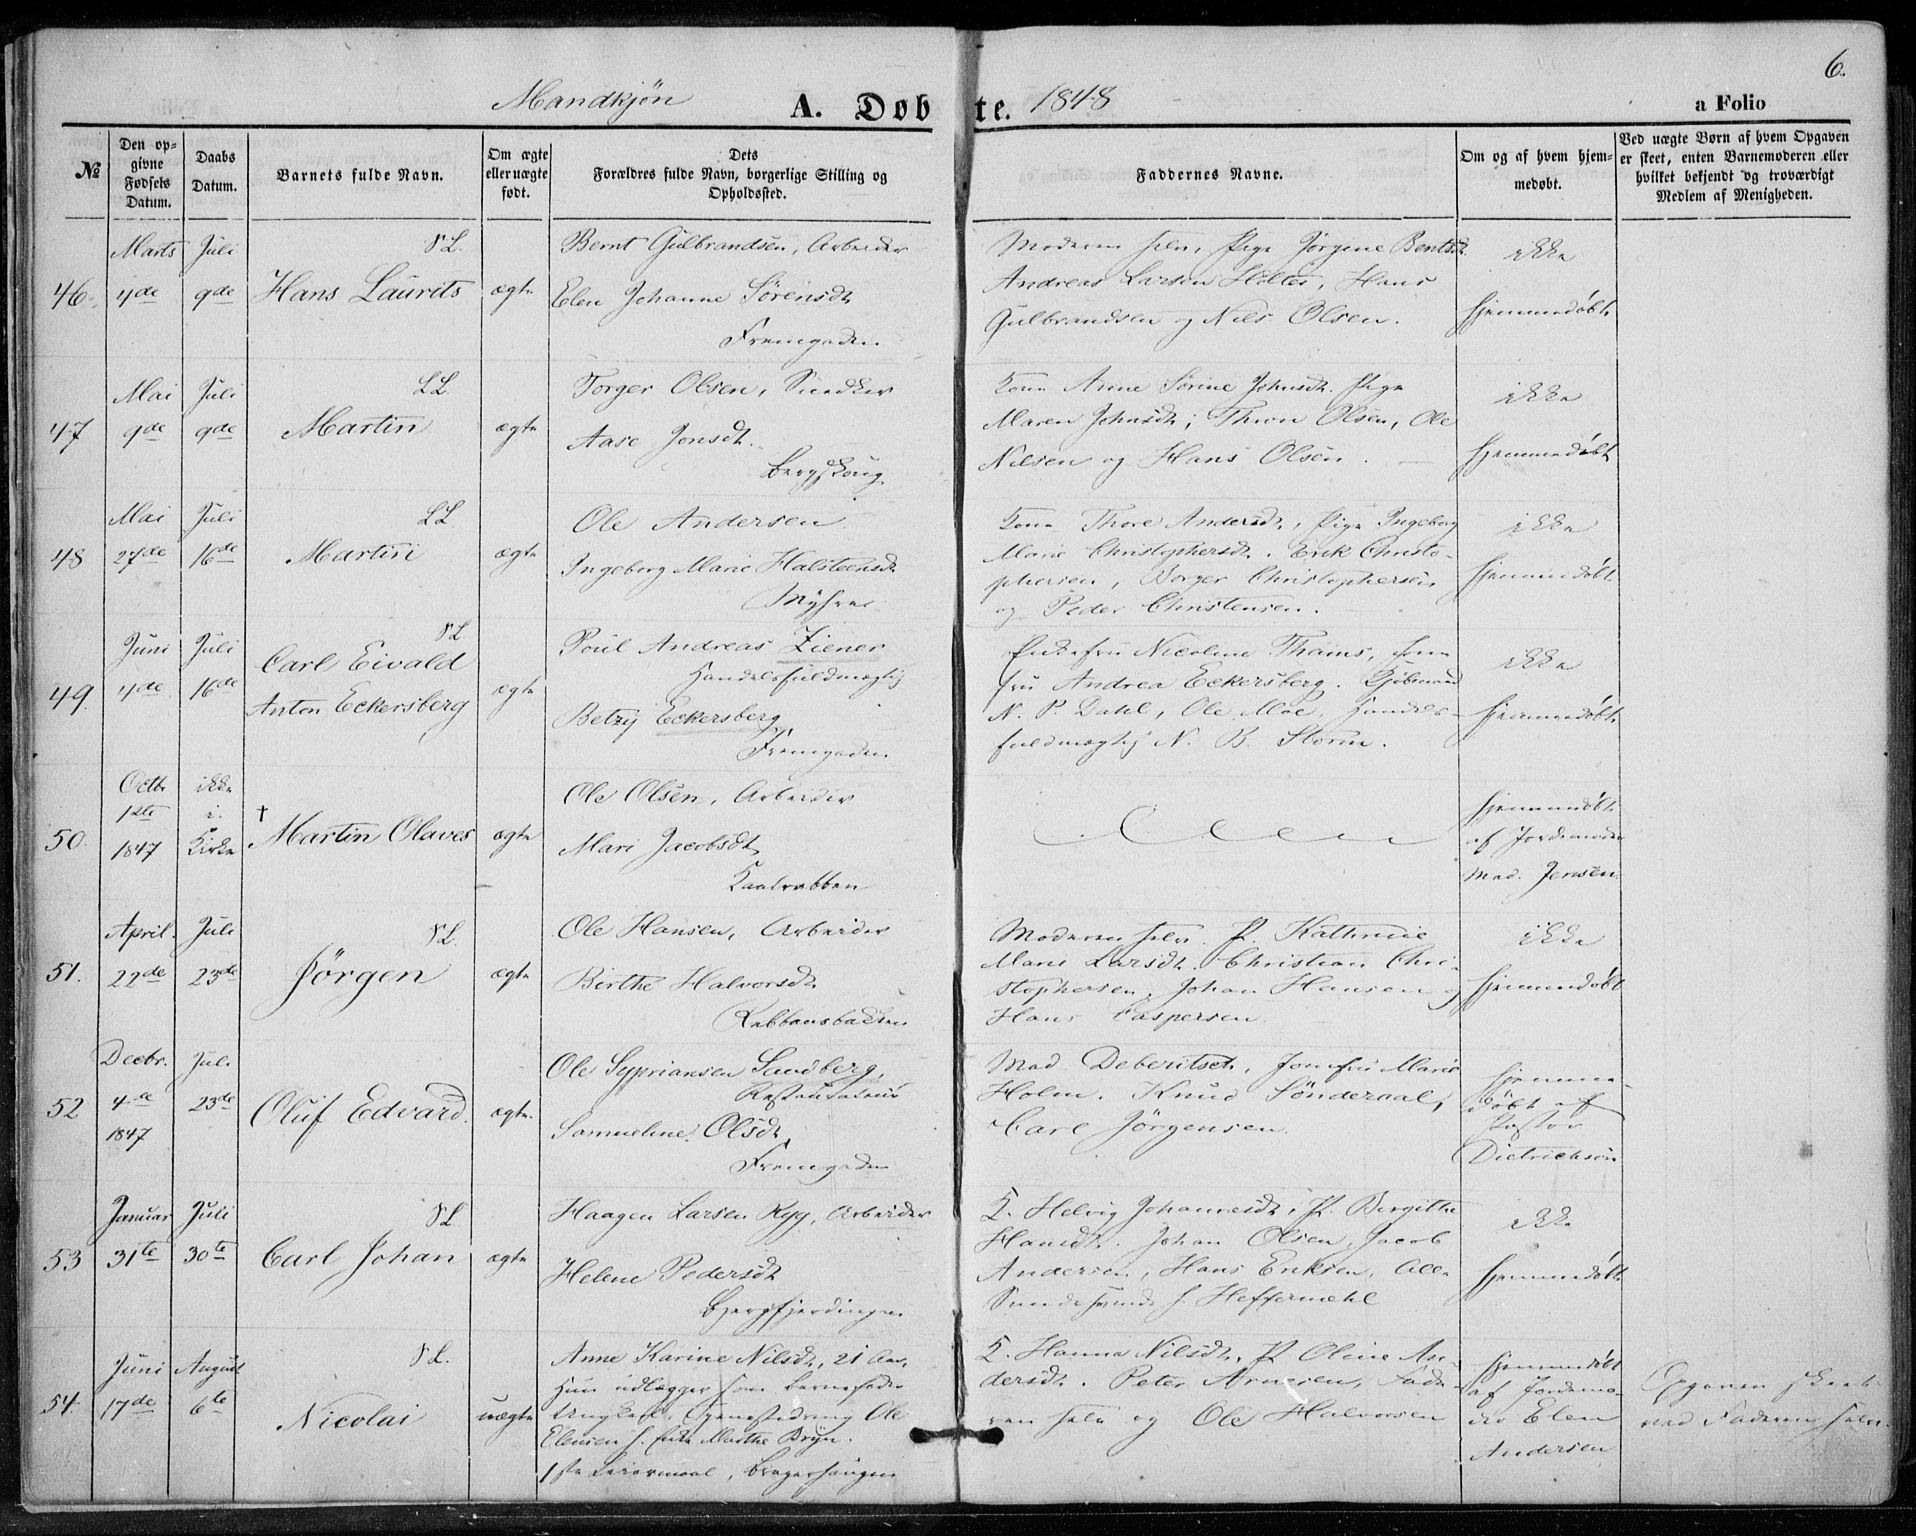 6.
Mandkjön A. Døbte. 1848 a Folio
№
Den opgivne Fødsels Datum.
Daabs Datum.
Barnets fulde Navn.
Om ægte eller uægte født.
Dets Forældres fulde Navn, borgerlige Stilling og Opholdssted.
Faddernes Navne.
Om og af hvem hjemmedøbt.
Ved uægte Børn af hvem Opgaven er skeet, enten Barnemoderen eller hvilket bekjendt og troværdigt Medlem af Menigheden.
46.
Marts 4de
Juli 9de
Hans Laurits
ægte
Bernt Gulbrandsen, Arbeider
Elen Johanne Sørensdt.
Fremgaden
Moderen selv, Pige Jørgine Bentsdt.
Andreas Larsen Holter, Hans
Gulbrandsen og Nils Olsen.
ikke
hjemmedøbt
47
Mai 9de
Juli 9de
LL.
Martin
ægte
Torger Olsen, Snedker
Aase Jonsdt.
Bergskoug
Kone Anne Sørine Johnsdt. Pige
Maren Johnsdt; Thron Olsen, Ole
Nilsen og Hans Olsen.
ikke
hjemmedøbt
48
Mai 27de
Juli 16de
LL
Martin
ægte
Ole Andersen
Ingeborg Marie Halsteensdt
Myhrene
Kone Thore Andersdt., Pige Ingeborg
Marie Christophersdt. Erik Christo-
phersen, Borger Christophersen
og Peder Christensen.
ikke
hjemmedøbt
49.
Juni 4de
Juli 16de
Carl Eivald
Anton Eckersberg
ægte
Poul Andreas Ziener
Handelsfuldmægtig
Betzy Eckersberg
Fremgaden
Enkefru Nicoline Thams, Jom-
fru Andrea Eckersberg. Kjøbmand
N. P. Dahl, Ole Moe, Handels-
fuldmægtig N. B. Storm.
ikke
hjemmedøbt
50.
Octbr 1ste 1847
ikke i Kirke
† Martin Olaves
ægte
Ole Olsen, Arbeider
Mari Jacobsdt.
Kaalrabben
hjemmedøbt
af Jordemoder
Mad. Jensen
51.
April 22de
Juli 23de
Jörgen
ægte
Ole Hansen, Arbeider
Birthe Halvorsdt.
Rabbansbakken
Moderen selv. P. Kathrine
Marie Larsdt. Christian Chri-
stophersen, Johan Hansen og
Hans Caspersen.
ikke
hjemmedøbt
52
Decbr. 4de 1847
Juli 23de
Oluf Edvard.
ægte.
Ole Sypriansen Sandberg,
Restaurateur
Samueline Olsdt.
Fremgaden
Mad. Deberitset, Jomfru Marie
Holm. Knud Sönderaal,
Carl Jörgensen.
hjemme-
døbt af
Pastor
Dietrichson
53
Januar 31te
Juli 30te
Carl Johan
ægte
Haagen Larsen Ryg, Arbeider
Helene Pedersdt.
Bjergfjerdingen
K. Helvig Johannesdt, P. Bergitte
Hansdt. Johan Olsen, Jacob
Andersen, Hans Eriksen, Alle
hjemmedøbt
ikke
54.
Juni 17de
August 6te
Nicolai
uægte
Anne Karine Nilsdt, 21 Aar,
Hun udlægger som Barnefader
Ungkarl, Ole
1ste Leiermaal, Bragerhaugen
K. Hanna Nilsdt, P. Oline An-
dersdt. Peter Arnesen, Fade-
ren selv og Ole Halvorsen
hjemmedøbt
af Jordemo-
der Elen
Andersen
Opgaven skeet
ved Faderen selv.